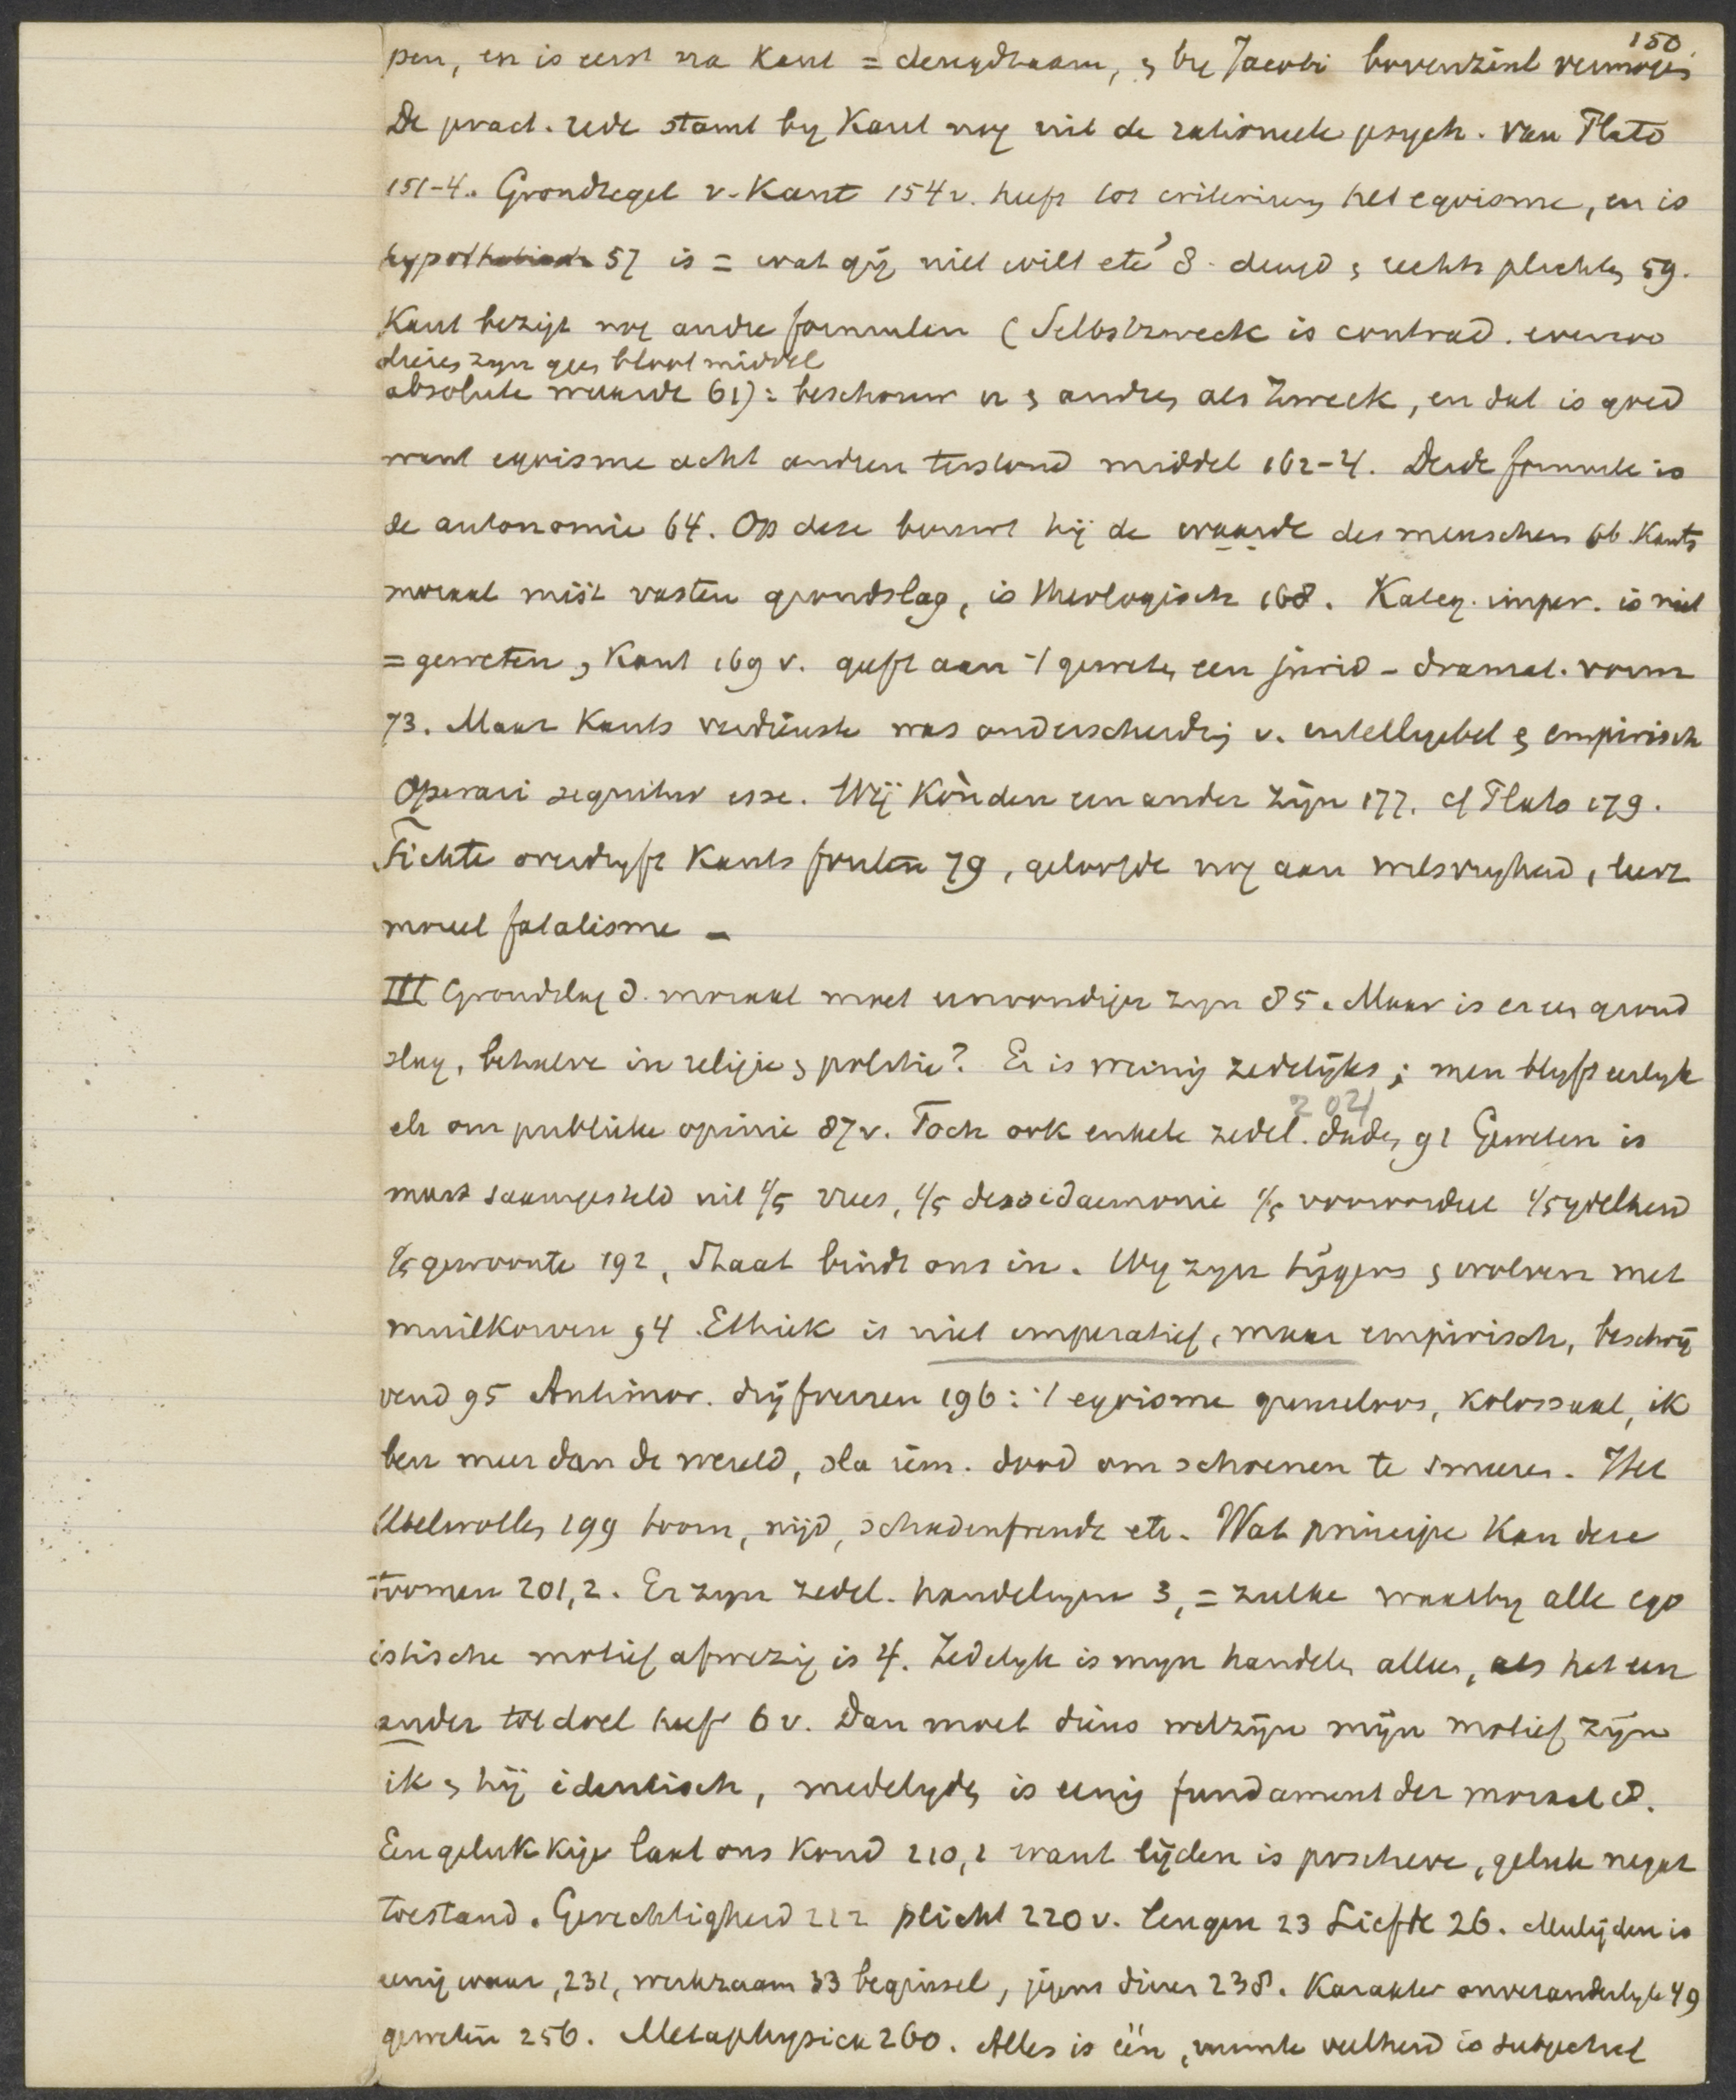 150.
pen, en is eerst na Kant = deugdzaam, & by Jacobi bovenzinl vermogen
De pract. rede stamt by Kant nog uit de rationeele psych. van Plato
151-4. Grondregel v. Kant 154 v. heeft tot criterium het egoisme, en is
hypothetisch 57 is = wat gij niet wilt etc 8. deugd & rechts plichten 59.
Kant bezigt nog andre formulen (Selbstzweck is contrad. evenzoo
dieren zyn geen bloot middel
absolute waarde 61): beschouw u & andren als Zweck, en dat is goed
want egoisme acht andren terstond middel 162-4. Derde formule is
de autonomie 64. Op deze bouwt hij de waarde des menschen 66 Kants
moraal mist vasten grondslag, is theologisch 168. Kateg. imper. is niet
= geweten, Kant 169 v. geeft aan 't geweten een jurid - dramat. vorm
73. Maar Kants verdienste was onderscheiding v. intelligebel & empirisch
Operari sequitur esse. Wij kònden een ander zijn 177. cf Plato 179.
Fichte overdryft Kants fouten 79, geloofde nog aan wilsvryheid, leert
moreel fatalisme -
III Grondslag d. moraal moet eenvoudiger zyn 85. Maar is er een grond
slag, behalve in religie & politie? Er is weinig zedelijks; men blyft eerlyk
etc om publieke opinie 87 v. Toch ook enkele zedel. daden 91 Geweten is
204
maar saamgesteld uit 1/5 vrees, 1/5 desidaemonie 1/5 vooroordeel 1/5 ydelheid
1/5 gewoonte 192, Staat bindt ons in. Wy zyn tijgers & wolven met
muilkorven 94. Ethiek is niet imperatief, maar empirisch, beschrij
vend 95 Antimor. drijfveeren 196: 't egoisme grenseloos, kolossaal, ik
ben meer dan de wereld, sla iem. dood om schoenen te smeren. Het
Übelwollen 199 toorn, nijd, schadenfreude etc. Wat principe kan deze
toomen 201,2. Er zyn zedel. handelingen 3, = zulke waarby alle ego
istische motief afwezig is 4. Zedelyk is myn handelen alleen, als het een
ander tot doel heeft 6 v. Dan moet diens welzijn mijn motief zijn
ik & hij identisch, medelyden is eenig fundament der moraal 8.
Een gelukkige laat ons koud 210,1 want lijden is positieve, geluk negat
toestand. Gerechtigheid 212 plicht 220 v. leugen 23 Liefde 26. Medelijden is
eenig waar, 231, werkzaam 33 beginsel, jegens dieren 238. Karakter onveranderlyk 49
geweten 256. Metaphysica 260. Alles is één, ruimte veelheid is subjectief